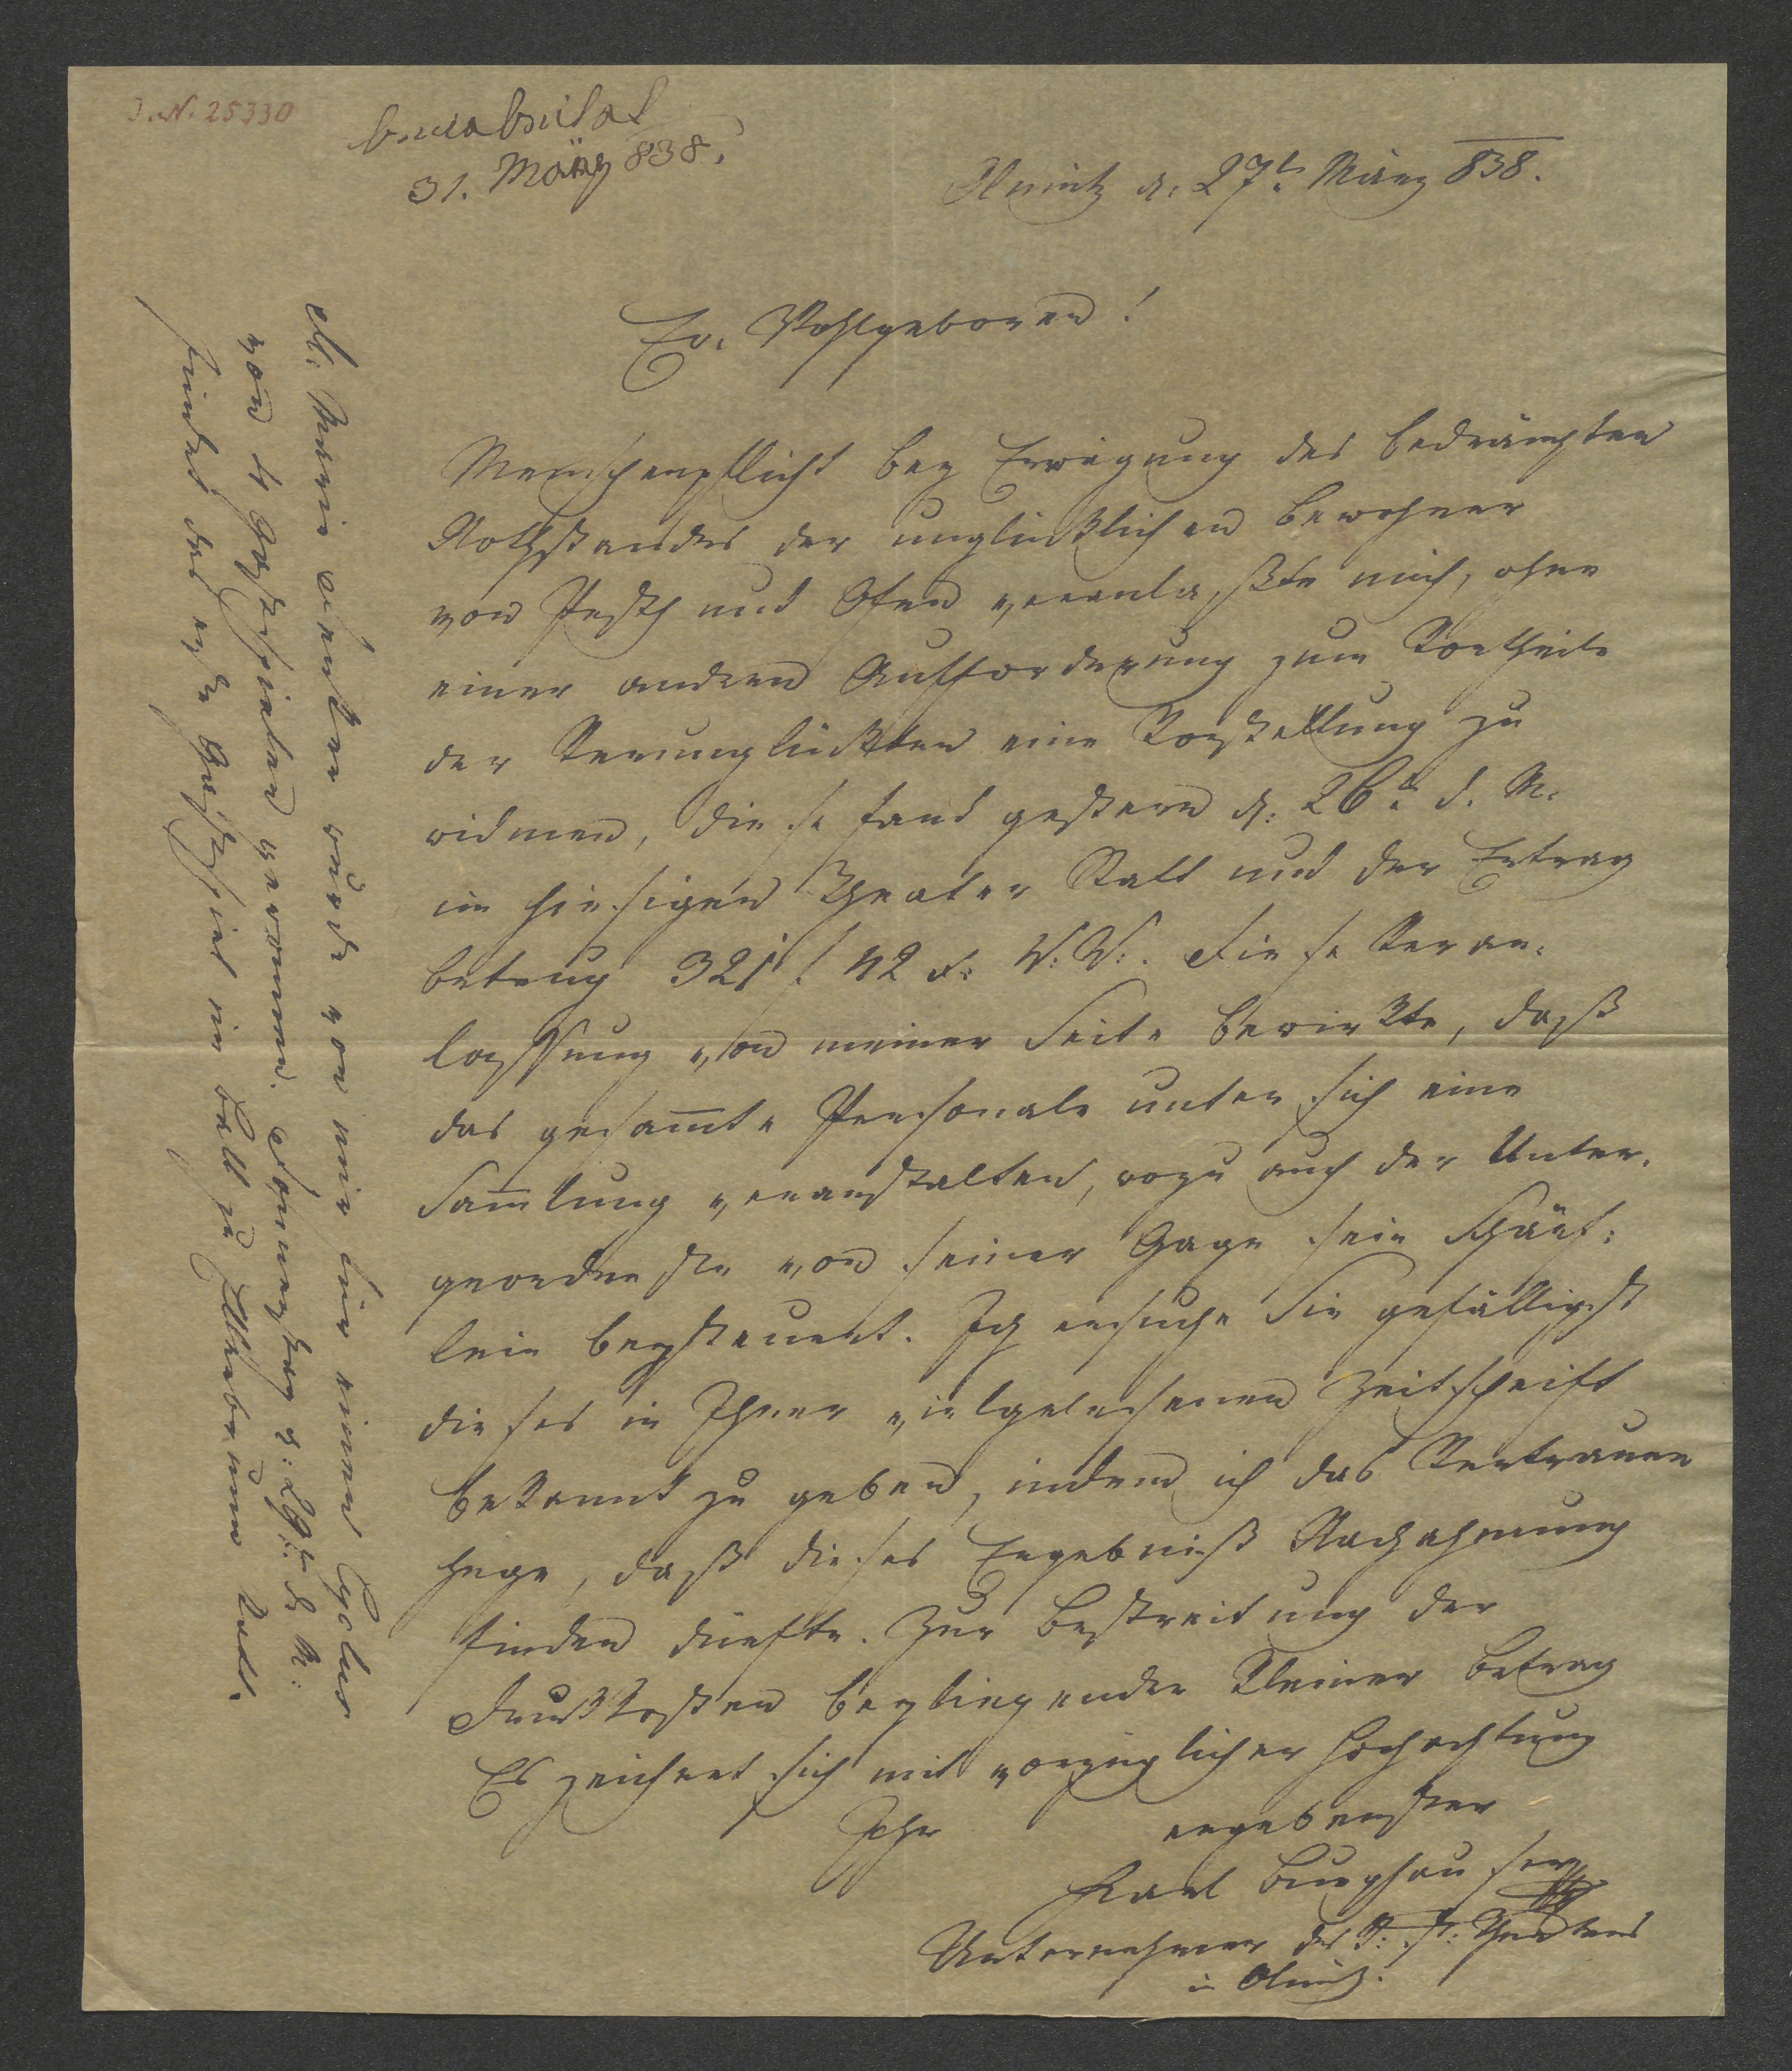 J. N. 25330
31. März 838.
Olmütz d. 27t März 838.
Er. Wohlgeboren!
Menschenpflicht bey Erwägung des bedrängten
Nothstandes der unglücklichen Bewohner
von Pesth und Ofen veranlaßte mich, ohne
einer andern Aufforderung zum Vortheile
der Verunglückten eine Vorstellung zu
widmen, diese fand gestern d: 26t d. M.
im hiesigen Theater Statt und der Ertrag
betrug 321 f 42 x: W: W:. Diese Veran-
lassung von meiner Seite bewirkte, daß
das gesam̅te Personale unter sich eine
Sam̅lung veranstalten, wozu auch der Unter-
geordneste von seiner Gage sein Schärf-
lein beysteuert. Ich ersuche Sie gefälligst
dieses in Ihrer vielgelesenen Zeitschrift
bekannt zu geben, indem ich das Vertrauen
hege, daß dieses Ergebniß Nachahmung
finden dürfte. Zur Bestreitung der
Druckkosten beyliegender kleiner Betrag
Es zeichnet sich mit vorzüglicher Hochachtung
Ihr ergebenster
Karl Burghauser
Unternehmer des K: St: Theaters
in Olmütz.
wurde von mir für einen Cyclus
von 4 Gastspielen gewonnen. Donnerstag d: 29t d M:
findet das erste Gastspiel im Ball zu Ellerbrunn statt.